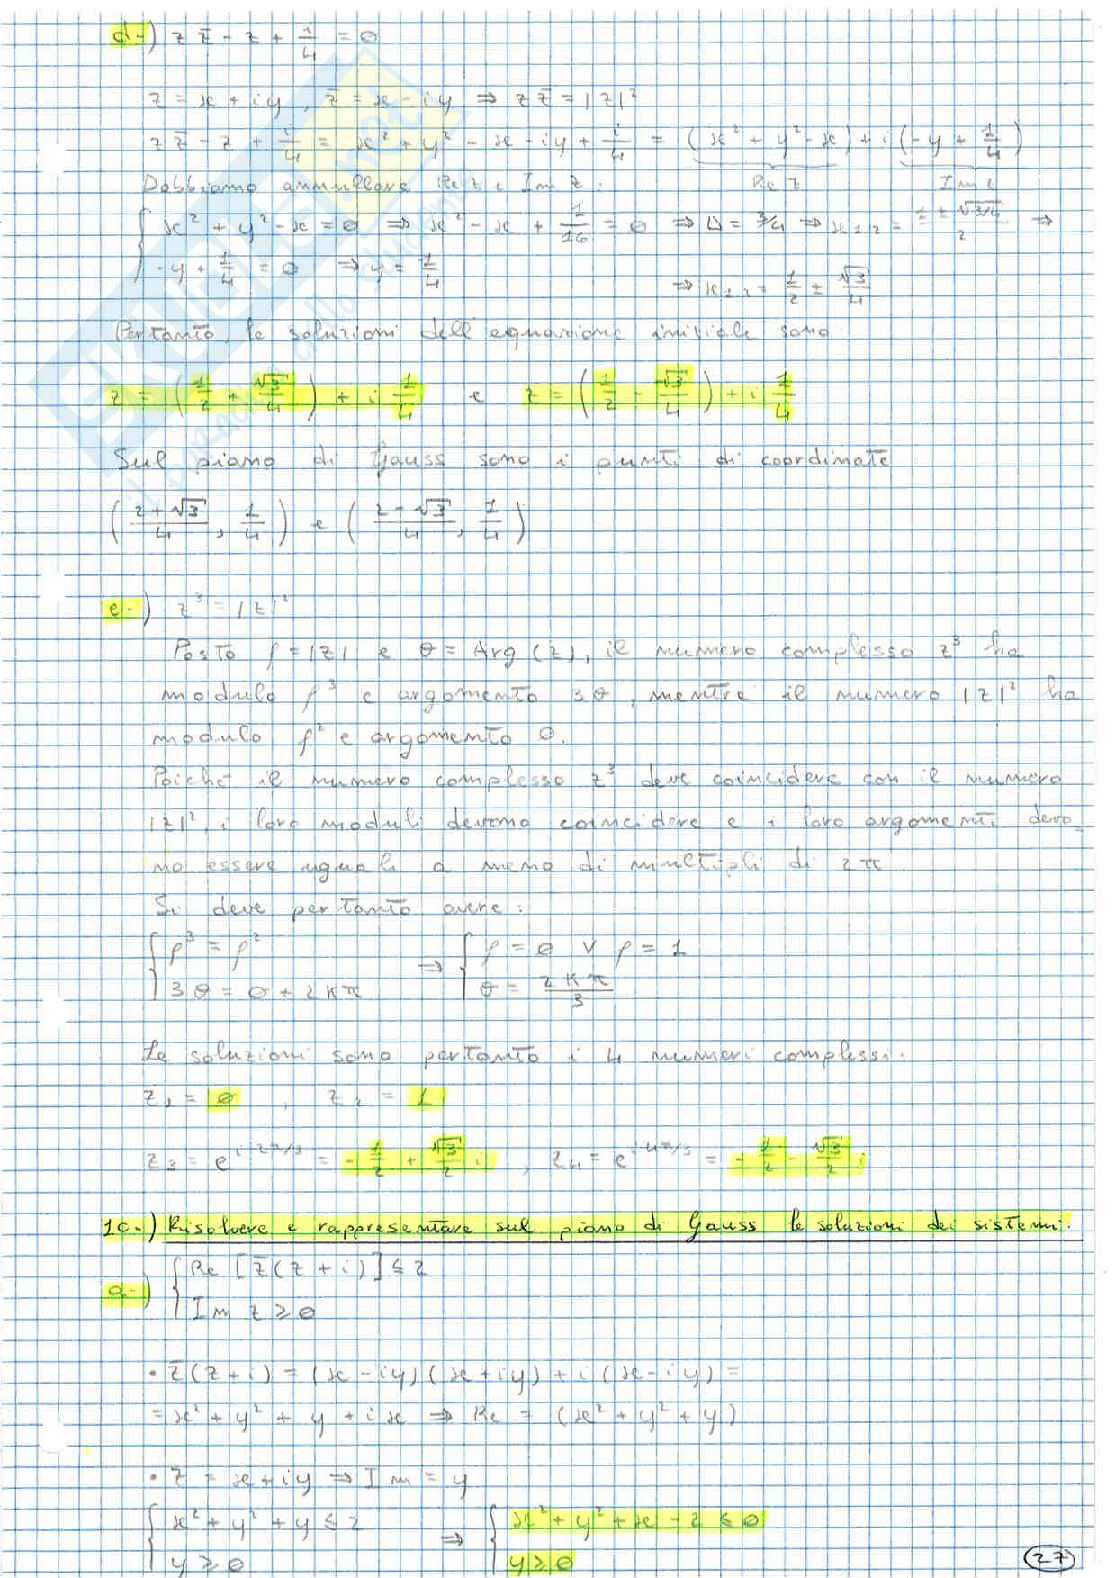 d-) z z̅ - z + 1/4 = 0
z = x + iy , z̅ = x - iy ⇒ z z̅ = |z|²
z z̅ - z + i/4 = x² + y² - x - iy + i/4 = (x² + y² - x) + i(-y + 1/4)
Dobbiamo annullare Re z e Im z: Re z Im z
{ x² + y² - x = 0 ⇒ x² - x + 1/16 = 0 ⇒ Δ = 3/4 ⇒ x₁,₂ = (1 ± √3/4)/2 ⇒
-y + 1/4 = 0 ⇒ y = 1/4 ⇒ x₁,₂ = 1/2 ± √3/4
Pertanto, le soluzioni dell'equazione iniziale sono
z = (1/2 + √3/4) + i 1/4 e z = (1/2 - √3/4) + i 1/4
Sul piano di Gauss sono i punti di coordinate
((2+√3)/4, 1/4) e ((2-√3)/4, 1/4)
e-) z³ = |z|²
Posto ρ = |z| e θ = Arg (z), il numero complesso z³ ha
modulo ρ³ e argomento 3θ, mentre il numero |z|² ha
modulo ρ² e argomento 0.
Poiché il numero complesso z³ deve coincidere con il numero
|z|², i loro moduli devono coincidere e i loro argomenti devo_
no essere uguali a meno di multipli di 2π
Si deve pertanto avere:
{ ρ³ = ρ² ⇒ { ρ = 0 ∨ ρ = 1
3θ = 0 + 2kπ θ = 2kπ/3
Le soluzioni sono pertanto i 4 numeri complessi:
z₁ = 0 , z₂ = 1
z₃ = e^(i 2π/3) = -1/2 + √3/2 i , z₄ = e^(i 4π/3) = -1/2 - √3/2 i
10-) Risolvere e rappresentare sul piano di Gauss le soluzioni dei sistemi:
a-) { Re [z̅(z + i)] ≤ 2
Im z ≥ 0
• z̅(z + i) = (x - iy)(x + iy) + i(x - iy) =
= x² + y² + y + ix ⇒ Re = (x² + y² + y)
• z = x + iy ⇒ Im = y
{ x² + y² + y ≤ 2 ⇒ { x² + y² + x - 2 ≤ 0
y ≥ 0 y ≥ 0
27